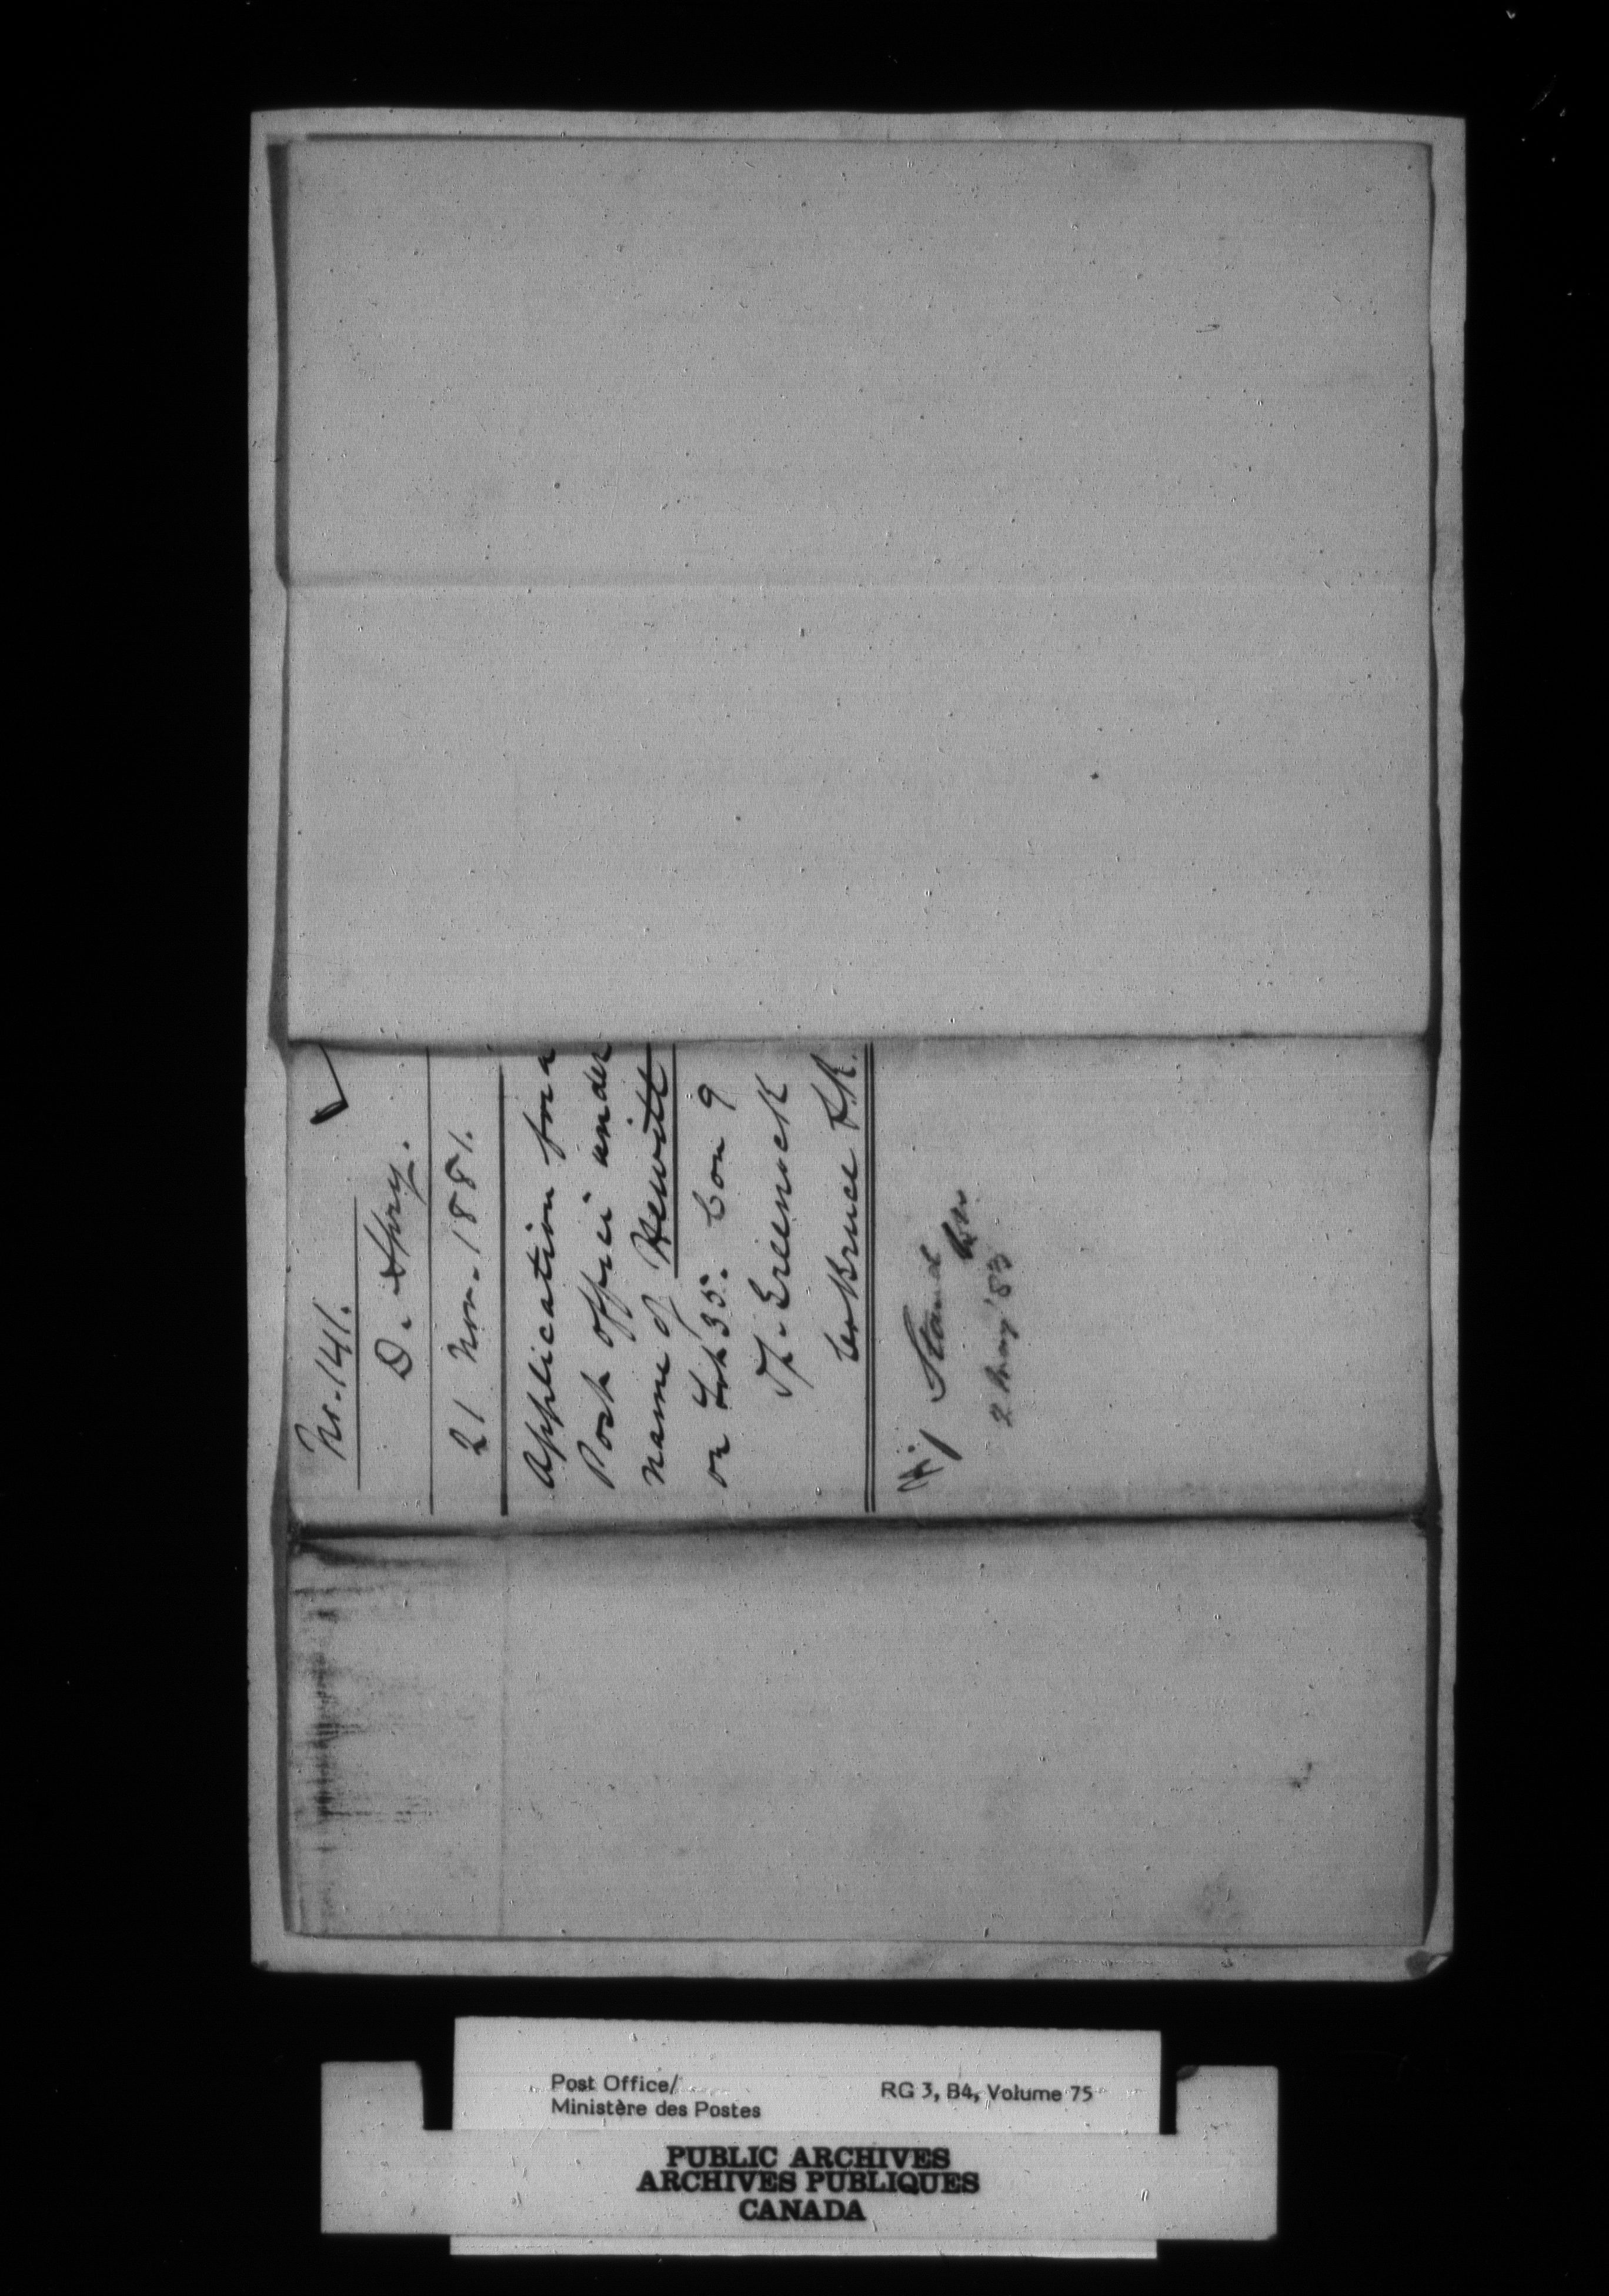 No. 141.
D. Spry.
21 Nov. 1881.
Application for a
Post Office under
name of Hewitt
on Lot 35. Con 9
Tp. Greenock
Co Bruce
Stand
2 May '83
Post Office/
Ministère des Postes
RG 3, B4, Volume 75
PUBLIC ARCHIVES
ARCHIVES PUBLIQUES
CANADA